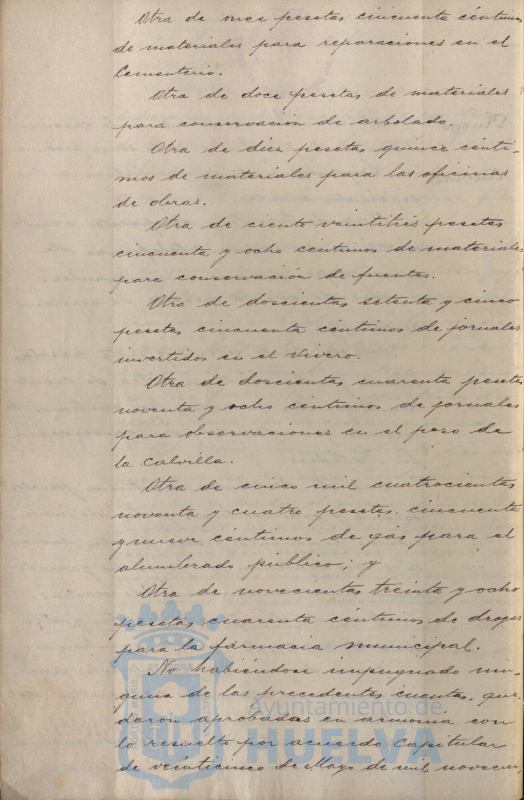 Otra de once pesetas cincuenta céntimos
de materiales para reparaciones en el
Cementerio.
Otra de doce pesetas de materiales
para conservación de arbolado.
Otra de diez pesetas quince cénti-
mos de materiales para las oficinas
de obras.
Otra de ciento veintitrés pesetas
cincuenta y ocho céntimos de materiales
para conservación de fuentes.
Otra de doscientas setenta y cinco
pesetas cincuenta céntimos de jornales
invertidos en el Vivero.
Otra de doscientas cuarenta pesetas
noventa y ocho céntimos de jornales
para observaciones en el pozo de
la Calvilla.
Otra de cinco mil cuatrocientas
noventa y cuatro pesetas cincuenta
y nueve céntimos de gas para el
alumbrado público; y
Otra de novecientas treinta y ocho
pesetas cuarenta céntimos de drogas
para la farmacia municipal.
No habiéndose impugnado nin-
guna de las precedentes cuentas, que-
daron aprobadas en armonía con
lo resuelto por acuerdo Capitular
de veinticinco de Mayo de mil novecien
Ayuntamiento de
HUELVA